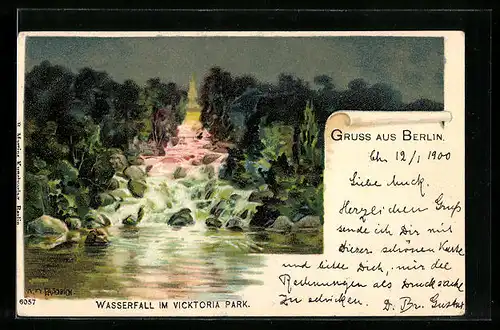 GRUSS AUS BERLIN.
Ch. 12/1 1900
Liebe Muck.
Herzlichen Gruß
sende ich Dir mit
dieser schönen Karte
und bitte Dich, mir die
Rechnungen als Drucksache
zu schicken. D. Br. Gustav
WASSERFALL IM VICKTORIA PARK.
6057